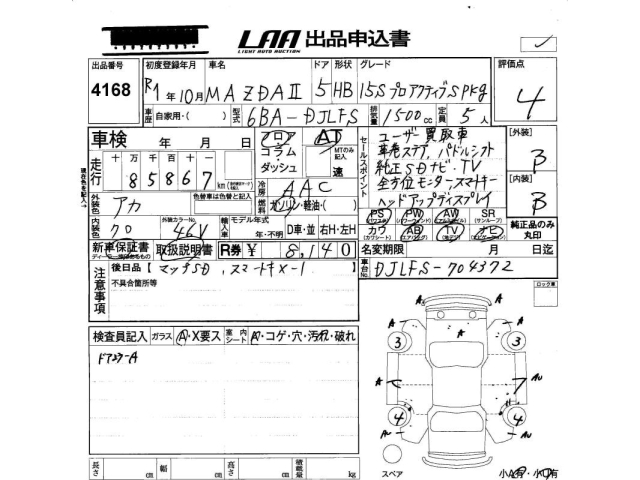 LAA 出品申込書
LIGHT AUTO AUCTION
出品番号 初度登録年月 車名 ドア 形状 グレード 評価点
4168 R1年10月 MAZDAⅡ 5 HB 15S プロアクティブS pkg 4
車歴 自家用・( ) 型式 6BA-DJLFS 排気量 1500cc 定員 5人
車検 年 月 日 フロア AT セールスポイント ユーザー買取車 [外装]
コラム・ MTのみ記入 革巻ステア, パドルシフト B
走行 十 万 千 百 十 一 ダッシュ 速 純正SDナビ・TV
85867 km 冷房 AAC 全方位モニター, スマートキー [内装]
外装色 アカ 色替車は色替と記入 燃料 ガソリン・軽油・( ) ヘッドアップディスプレイ B
内装色 クロ 外装カラーNo. 46V 輸入車 モデル年式 年・不明 D車・並 右H・左H
PS PW AW SR 純正品のみ丸印
カワ AB TV ナビ
新車保証書 取扱説明書 R券 ¥ 8,140 名変期限 月 日迄
ディーラー捺印あるもの
注意事項 後日品【 マップSD, スマートキー1 】 車台No. DJLFS-704372
不具合箇所等
ロック車
検査員記入 ガラス A・X要ス 室内シート A・コゲ・穴・汚れ・破れ
A
3 3
A Au
4 4
A Au
Au
長さ cm 幅 cm 高さ cm 積載量 kg
スペア 小A有・小U有